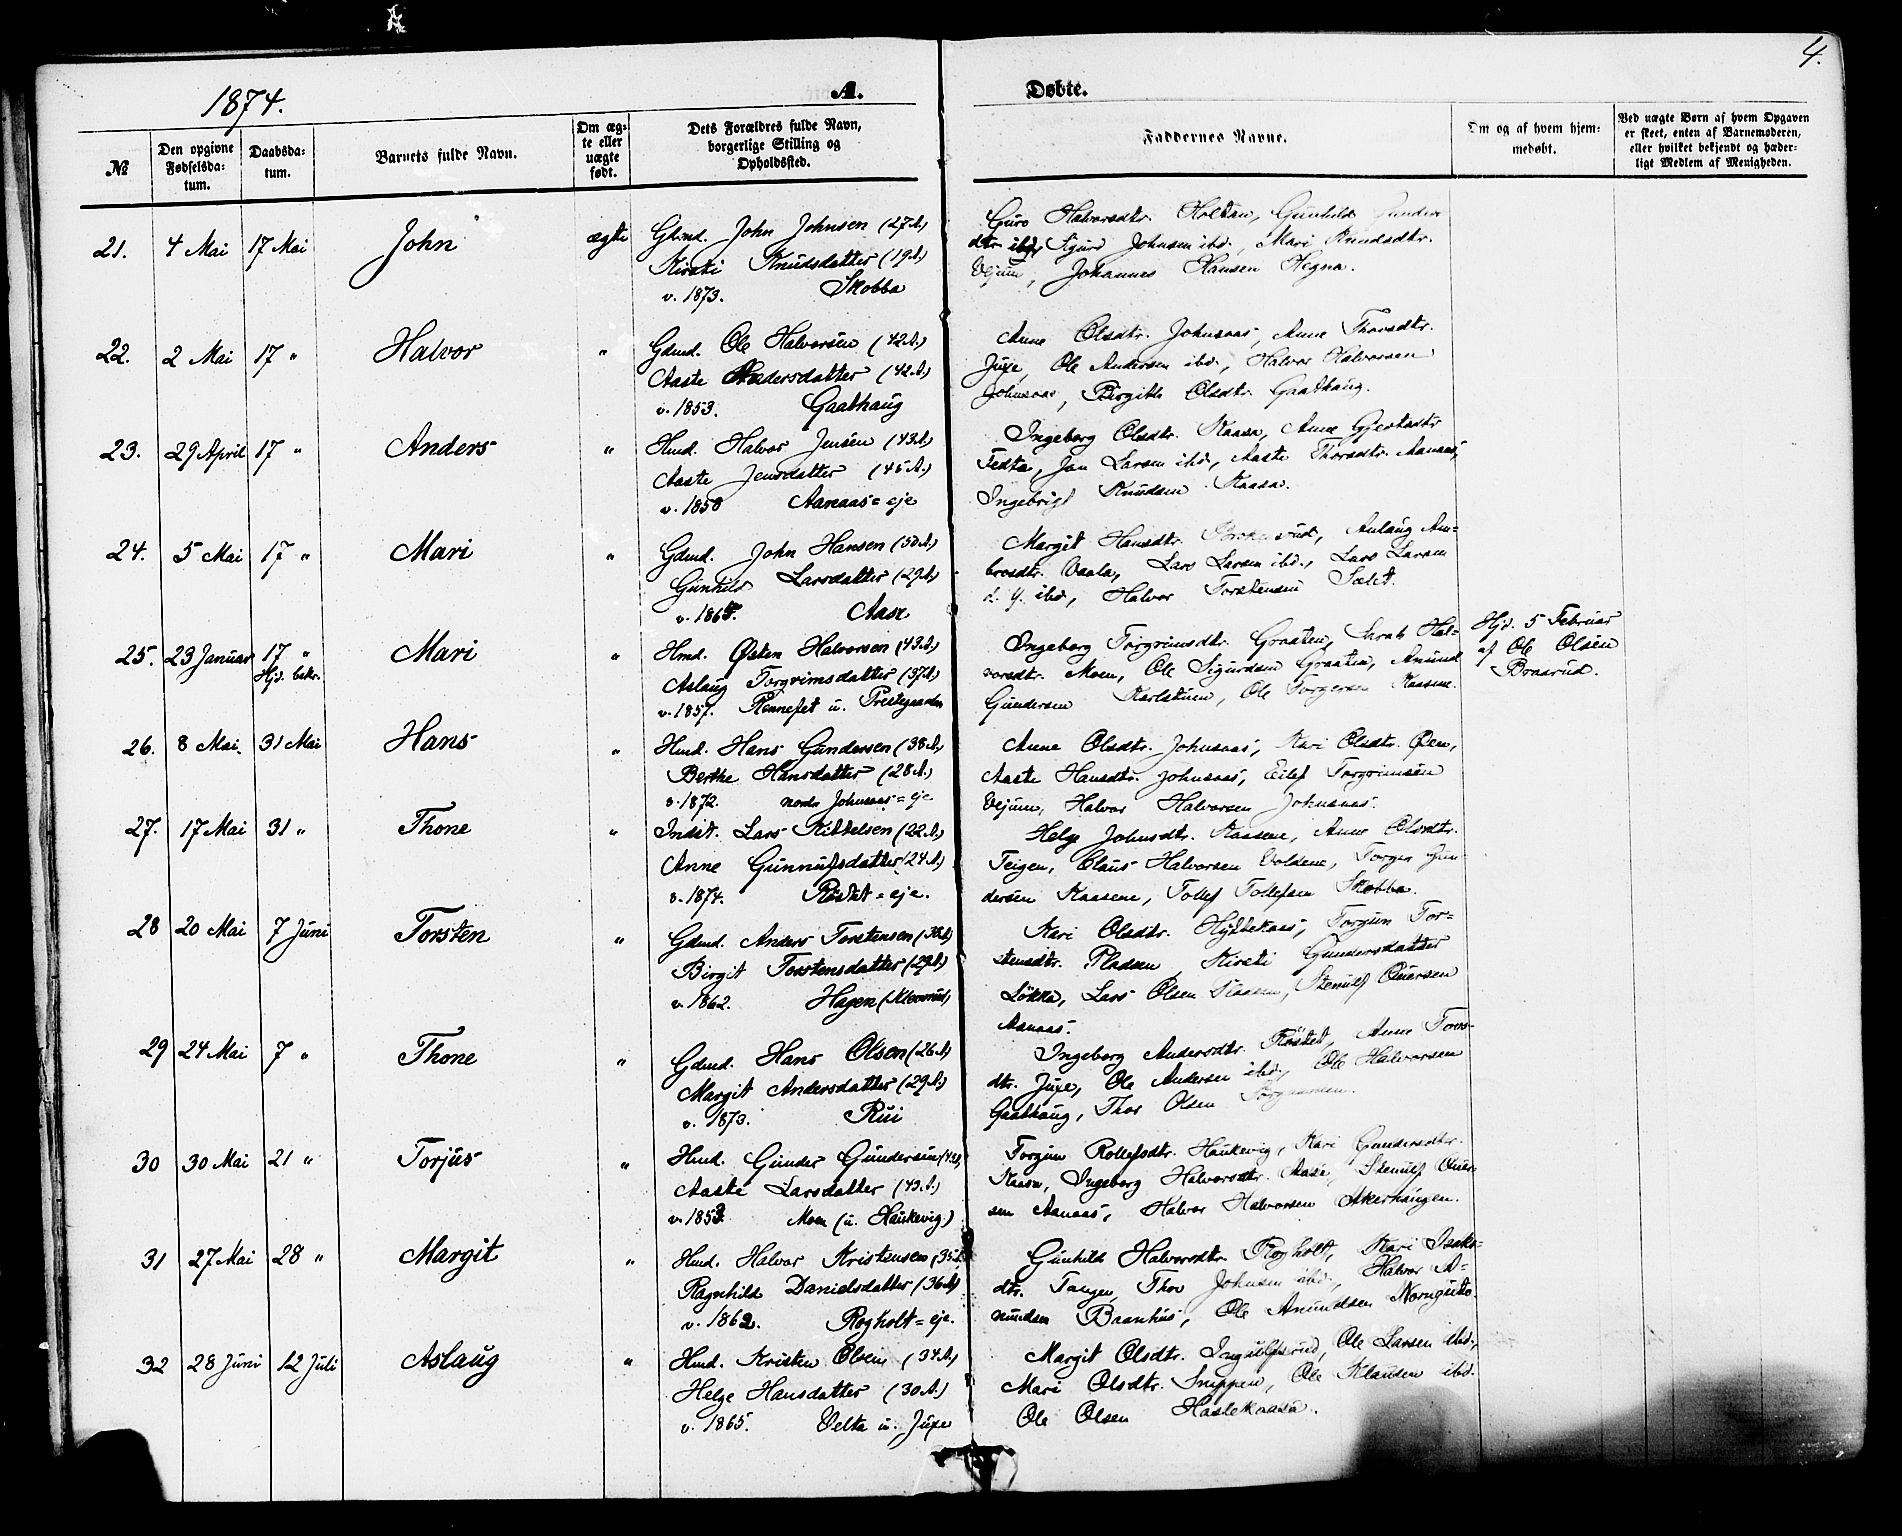 4.
1874.
A.
Døbte.
№
Den opgivne Fødselsdatum.
Daabsdatum.
Barnets fulde Navn.
Om ægte eller uægte født.
Dets Forældres fulde Navn, borgerlige Stilling og Opholdssted.
Faddernes Navne.
Om og af hvem hjemmedøbt.
Ved uægte Børn af hvem Opgaven er skeet, enten af Barnemoderen, eller hvilket bekjendt og hæderligt Medlem af Menigheden.
21. 4 Mai 17 Mai John ægte Gbmd. John Johnsen (27 A.)
Kirsti Knudsdatter (19 A.)
v. 1873. Skobba
Guro Halvorsdtr. Holtan, Gunhild
dtr. ibd. Sigurd Johnsen ibd., Mari Knudsdtr.
Vejum, Johannes Hansen Hegna.
22. 2 Mai 17 " Halvor " Gdmd. Ole Halvorsen (42 A.)
Aaste Andersdatter (42 A.)
v. 1853. Gaathaug
Anne Olsdtr. Johnsaas, Anne Thorsdtr.
Juxe, Ole Andersen ibd., Halvor Halvorsen
Johnsaas, Birgith Olsdtr. Gaathaug.
23. 29 April 17 " Anders " Hmd. Halvor Jensen (43 A.)
Aaste Jensdatter (45 A.)
v. 1850 Aanaas=eje
Ingeborg Olsdtr. Kaasa, Anne
Jan Larsen ibd, Aaste Thorsdtr. Aanaas,
Ingebrigt Knudsen Kaasa.
24. 5 Mai 17 " Mari " Gdmd. John Hansen (50 A.)
Gunhild Larsdatter (29 A.)
v. 1865. Aase
Margit Hansdtr. Aslaug Am=
brosdtr. Vaala, Lars Larsen ibd., Lars Larsen
d. y. ibd, Halvor Torstensen
25. 23 Januar 17 " Hjd. bekr. Mari " Hmd. Østen Halvorsen (43 A.)
Aslaug Torgrimsdatter (37 A.)
v. 1857. Rennefet u. Prestegaarden
Ingeborg Torgrimsdtr. Graaten, Sarah Hal=
vorsdtr. Moen, Ole Sigurdsen Graaten, Amund
Gundersen Ole Torgersen Kaasene.
Hjd. 5 Februar
af Ole Olsen
Braarud.
26. 8 Mai. 31 Mai Hans " Hmd. Hans Gundersen (38 A.)
Berthe Hansdatter (28 A.)
v. 1872. nordr Johnsaas=eje
Anne Olsdtr. Johnsaas, Kari Olsdtr. Øen,
Aaste Hansdtr. Johnsaas, Eilef Torgrimsen
Vejum, Halvor Halvorsen Johnsaas.
27. 17 Mai 31 " Thone " Indst. Lars Kittelsen (22 A.)
Anne Gunnulfsdatter (24 A.)
v. 1874. Røstet=eje.
Helge Johnsdtr. Kaasene, Anne Olsdtr.
Teigen, Claus Halvorsen Voldene, Torger Gun=
dersen Kaasene, Tollef Tollefsen Skobba.
28 20 Mai 7 Juni Torsten " Gdmd. Anders Torstensen (38 A.)
Birgit Torstensdatter (29 A.)
v. 1862. Hagen (Kleverud)
Kari Olsdtr. Torgun Tor=
stensdtr. Pladsen, Kirsti Gundersdatter
Løkka, Lars Olsen Kaasen, Stenulf
Aanaas.
29 24 Mai 7 " Thone " Gdmd. Hans Olsen (26 A)
Margit Andersdatter (29 A.)
v. 1873. Rui
Ingeborg Andersdtr. Røstet, Anne Tors=
dtr. Juxe, Ole Andersen ibd, Ole Halvorsen
Gaathaug, Thor Olsen
30 30 Mai 21 " Torjus " Hmd. Gunder Gundersen
Aaste Larsdatter (43 A.)
v. 1853. Moen (u. Haukevig)
Torgun Rollefsdtr. Haukevig, Kari Gundersdtr.
Kaasa, Ingeborg Halvorsdtr. Aase, Stenulf
sen Aanaas, Halvor Halvorsen Akerhaugen.
31 27 Mai 28 " Margit " Hmd. Halvor Kristensen (35 A.)
Ragnhild Danielsdatter (36 A)
v. 1862. Rogholt=eje.
Gunhild Halvorsdtr. Rogholt, Kari Isaks=
dtr. Tangen, Thor Johnsen ibd., Halvor A=
mundsen Baanhus, Ole Amundsen
32 28 Juni 12 Juli Aslaug " Hmd. Kristen Olsen (34 A.)
Helge Hansdatter (30 A.)
v. 1865. Velta u. Juxe
Margit Olsdtr. Ingulfsrud, Ole Larsen ibd.,
Mari Olsdtr. Snippen, Ole Klausen ibd.
Ole Olsen Haslekaasa.